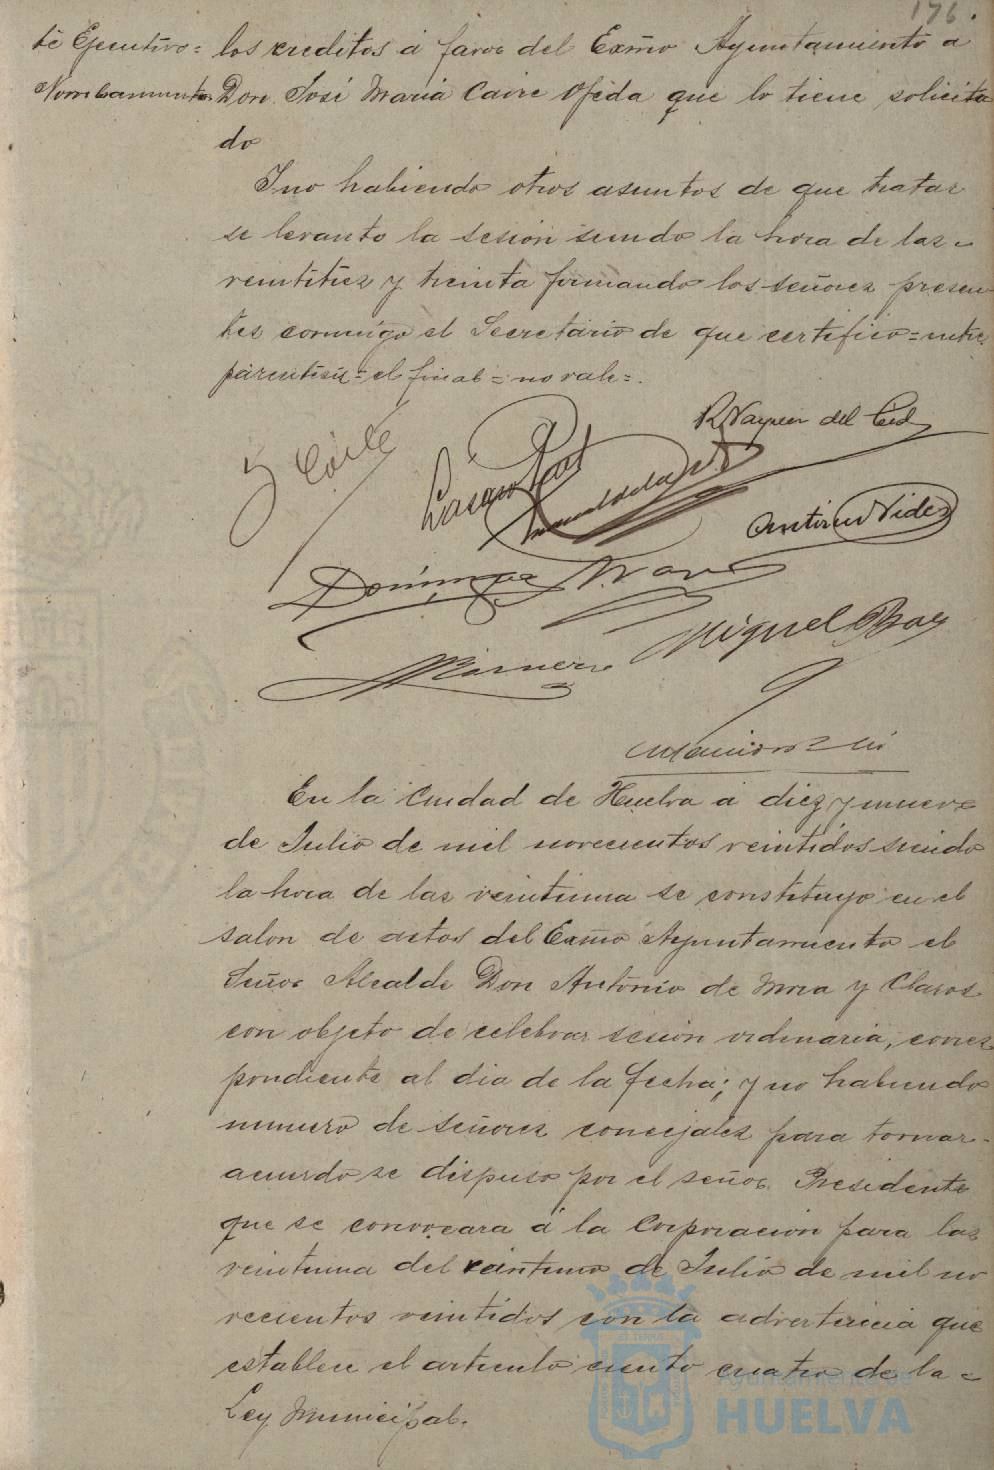 176.
te Ejecutivo= los creditos á favor del Exmo Ayuntamiento a
Nombramiento Don José Maria Caire Ojeda que lo tiene solicita
do
Y no habiendo otros asuntos de que tratar
se levanto la sesión siendo la hora de las=
veintitres y treinta firmando los señores presen
tes conmigo el Secretario de que certifico=entre
parentesis=el final=no vale=.
J Coire
R Vazquez del Cid
Lázaro
Antonio Vides
Domingo
Miguel Baez
En la Ciudad de Huelva á diez y nueve
de Julio de mil novecientos veintidos siendo
la hora de las veintiuna se constituyo en el
salon de actos del Exmo Ayuntamiento el
Señor Alcalde Don Antonio de Mora y Claros
con objeto de celebrar sesión ordinaria, corres
pondiente al dia de la fecha; y no habiendo
numero de señores concejales para tomar=
acuerdo se dispuso por el señor Presidente
que se convocara á la Corporación para las
veintiuna del veintiuno de Julio de mil no
vecientos veintidos con la advertencia que
establece el articulo ciento cuatro de la=
Ley Municipal.
Ayuntamiento de
HUELVA